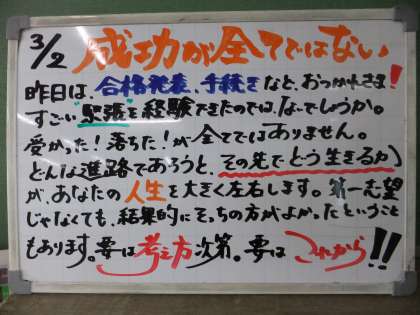 3/2 成功が全てではない
昨日は、合格発表、手続きなど、おつかれさま!
すごい"緊張"を経験できたのでは、ないでしょうか。
受かった!落ちた!が全てではありません。
どんな進路であろうと、その先でどう生きるか
が、あなたの人生を大きく左右します。第一志望
じゃなくても、結果的にそっちの方がよかったということ
もあります。要は考え方次第。要はこれから!!